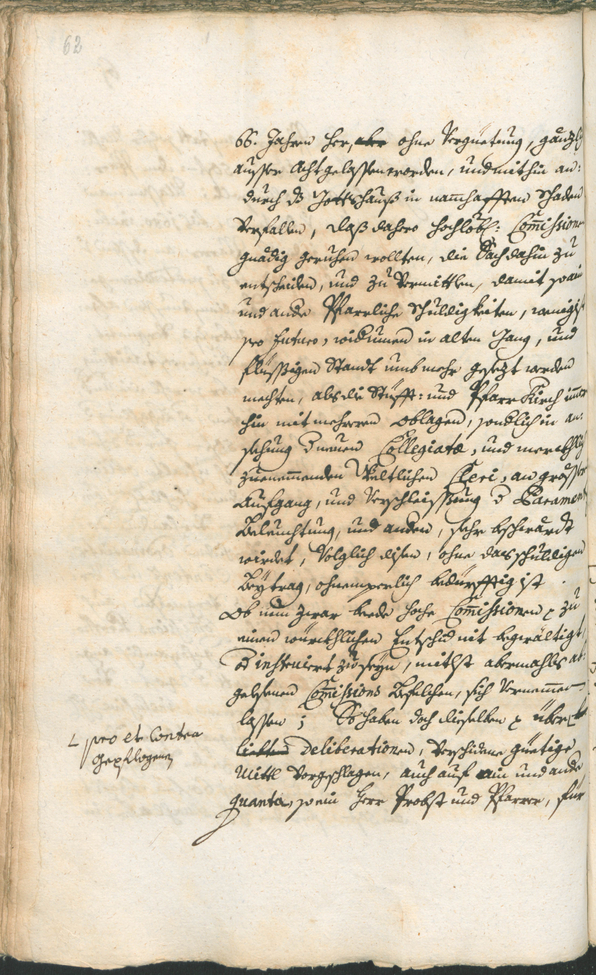 62
66. Jahren her, aber ohne Vergnetung, gänzl
ausser Acht gelassen worden, und mithin an:
durch dß Gottshauß in namhafften Schaden
Verfallen, daß dahero hochlöbl: Commissione
gnädig geruhen wollten, die Sach dahin zu
entscheiden, und zu Vermittlen, damit
und andre Pfarrliche Schuldigkeiten, wenigst
pro futuro, widrumen in alten Gang, und
flüssigen Standt umb mehr gesezt werden
mechten, als die Stüfft: und Pfarr Kirch immer
hin mit mehreren Oblagen, sondlich in an:
sehung d neuen Collegiatæ, und
zunemmenden Weltlichen Cleri, an grosser
Aufgang, und Verschleissung d Parament
Beleuchtung, und anden, sehr beschwärdt
wirdet, Volglich disen, ohne das schuldigen
Beytrag, ohnemperlich bedürfftig ist.
Ob nun zwar beede hohe Commissionen p zu
einen würckhlichen Entschid nit begwältiget,
od instruiert zu seyn, mitlst abermahls ab:
gelesenen Commissions Befelchen, sich Vernemmen
lassen; So haben doch dieselben p über
liebten Deliberationen, Verschidene güetige
Mittl Vorgeschlagen, auch auf ain und andre
quanta, so ein Herr Probst und Pfarrer, für
pro et Contra
gepflogenen